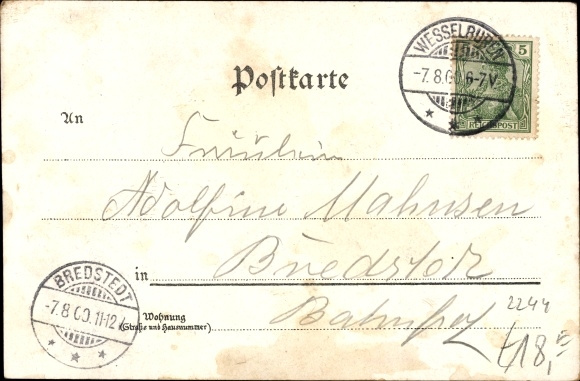 WESSELBUREN
-7.8.00. 6-7V.
5
REICHSPOST
Postkarte
An
Fräulein
Adolfine Mahnsen
in Bredstedt
BREDSTEDT
-7.8.00. 11-12V.
Wohnung
(Straße und Hausnummer)
Bahnhof
2244
18,